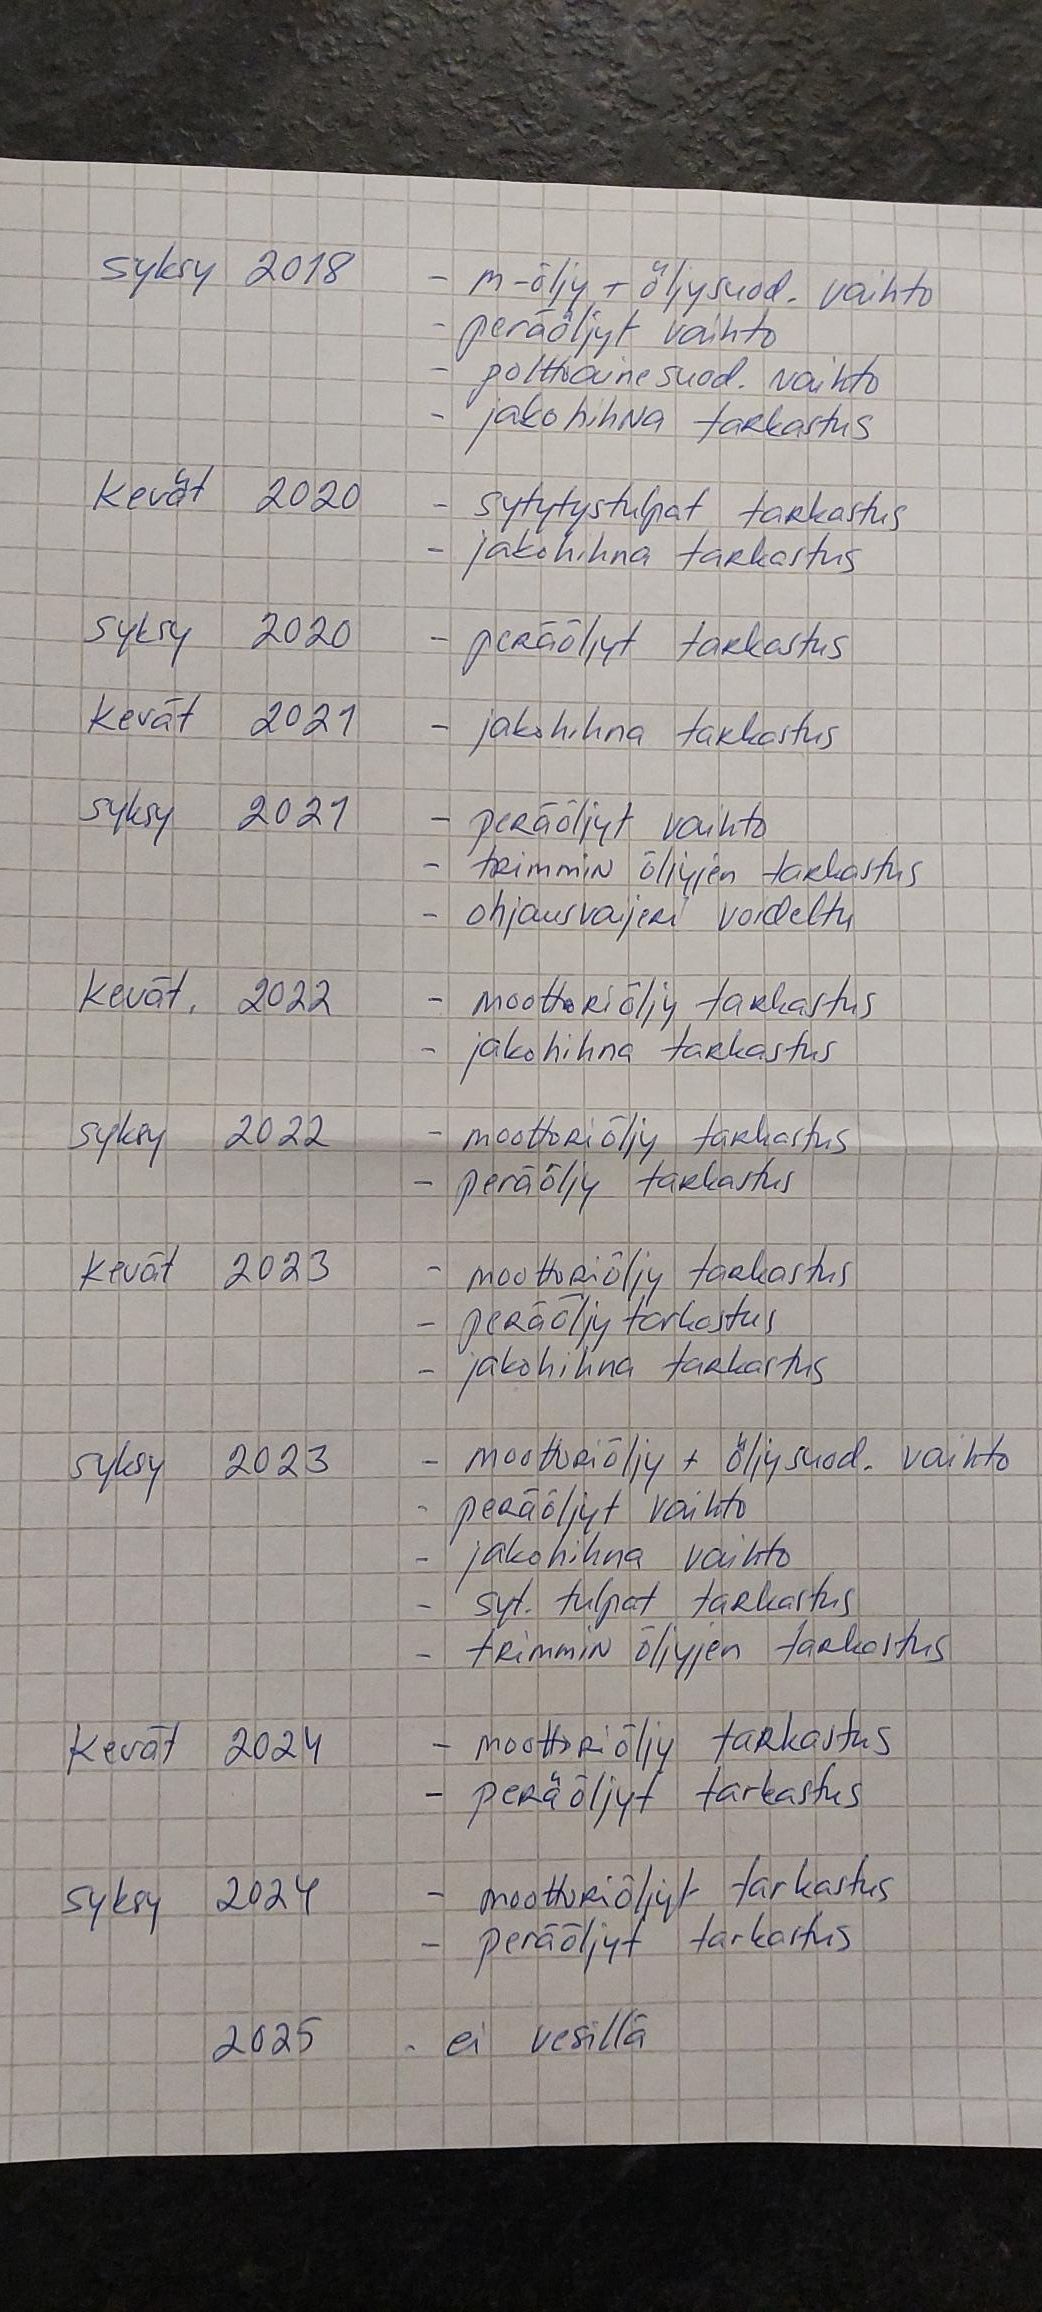 syksy 2018 - m-öljy + öljysuod. vaihto
- peräöljyt vaihto
- polttoainesuod. vaihto
- jakohihna tarkastus
Kevät 2020 - sytytystulpat tarkastus
- jakohihna tarkastus
syksy 2020 - peräöljyt tarkastus
Kevät 2021 - jakohihna tarkastus
syksy 2021 - peräöljyt vaihto
- trimmin öljyjen tarkastus
- ohjausvaijeri voideltu
Kevät. 2022 - moottoriöljy tarkastus
- jakohihna tarkastus
syksy 2022 - moottoriöljy tarkastus
- peräöljy tarkastus
Kevät 2023 - moottoriöljy tarkastus
- peräöljy tarkastus
- jakohihna tarkastus
syksy 2023 - moottoriöljy + öljysuod. vaihto
- peräöljyt vaihto
- jakohihna vaihto
- syt. tulpat tarkastus
- trimmin öljyjen tarkastus
Kevät 2024 - moottoriöljy tarkastus
- peräöljyt tarkastus
syksy 2024 - moottoriöljyt tarkastus
- peräöljyt tarkastus
2025 - ei vesillä